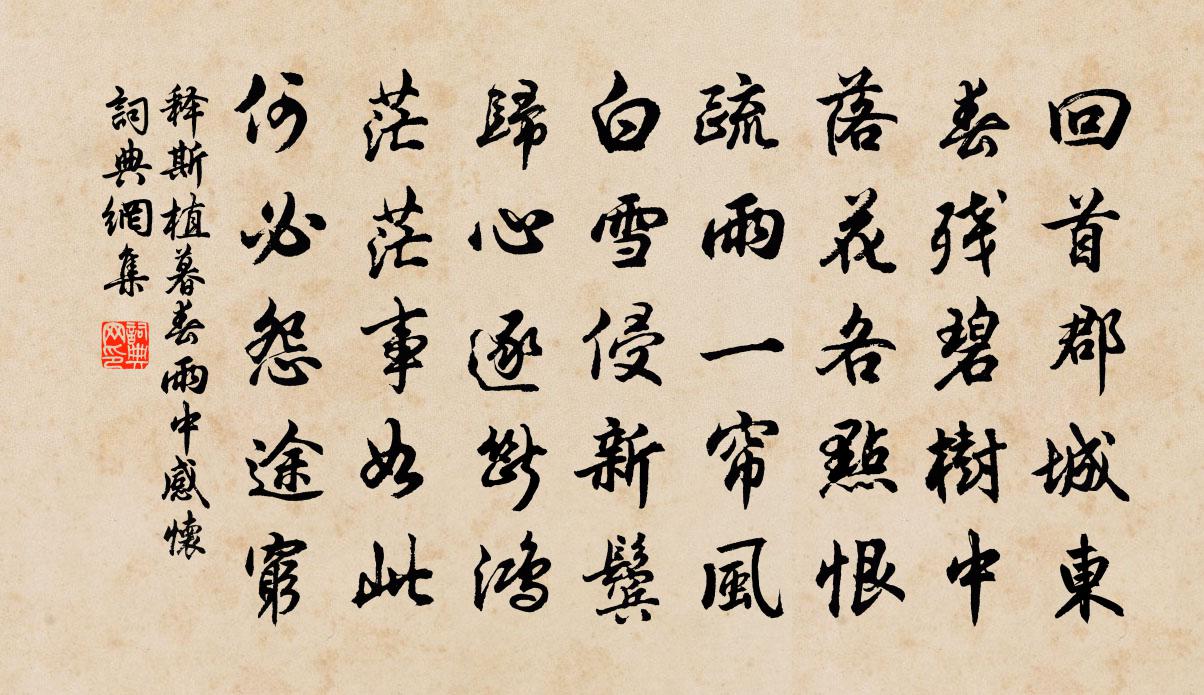 回首郡城東
春殘碧樹中
落花各點恨
疏雨一帘風
白雪侵新鬢
歸心逐斷鴻
茫茫事如此
何必怨途窮
释斯植暮春雨中感懷
詞典網集
詞典
网印